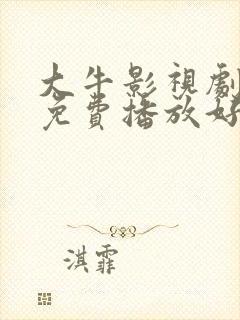 大牛影視劇
免費播放好
淇霏